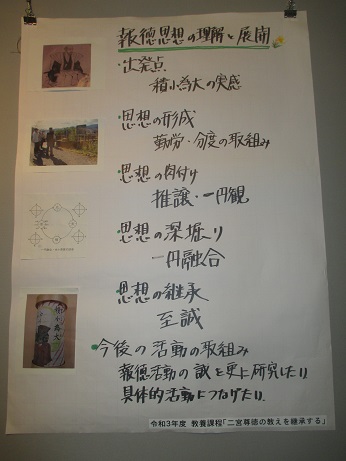 報徳思想の理解と展開
・出発点
積小為大の実感
・思想の形成
勤労・分度の取組み
・思想の肉付け
推譲・一円観
・思想の深堀り
一円融合
・思想の継承
至誠
・今後の活動の取組み
報徳活動の誠を更に研究したい
具体的活動につなげたい
令和3年度 教養課程「二宮尊徳の教えを継承する」
積小為大